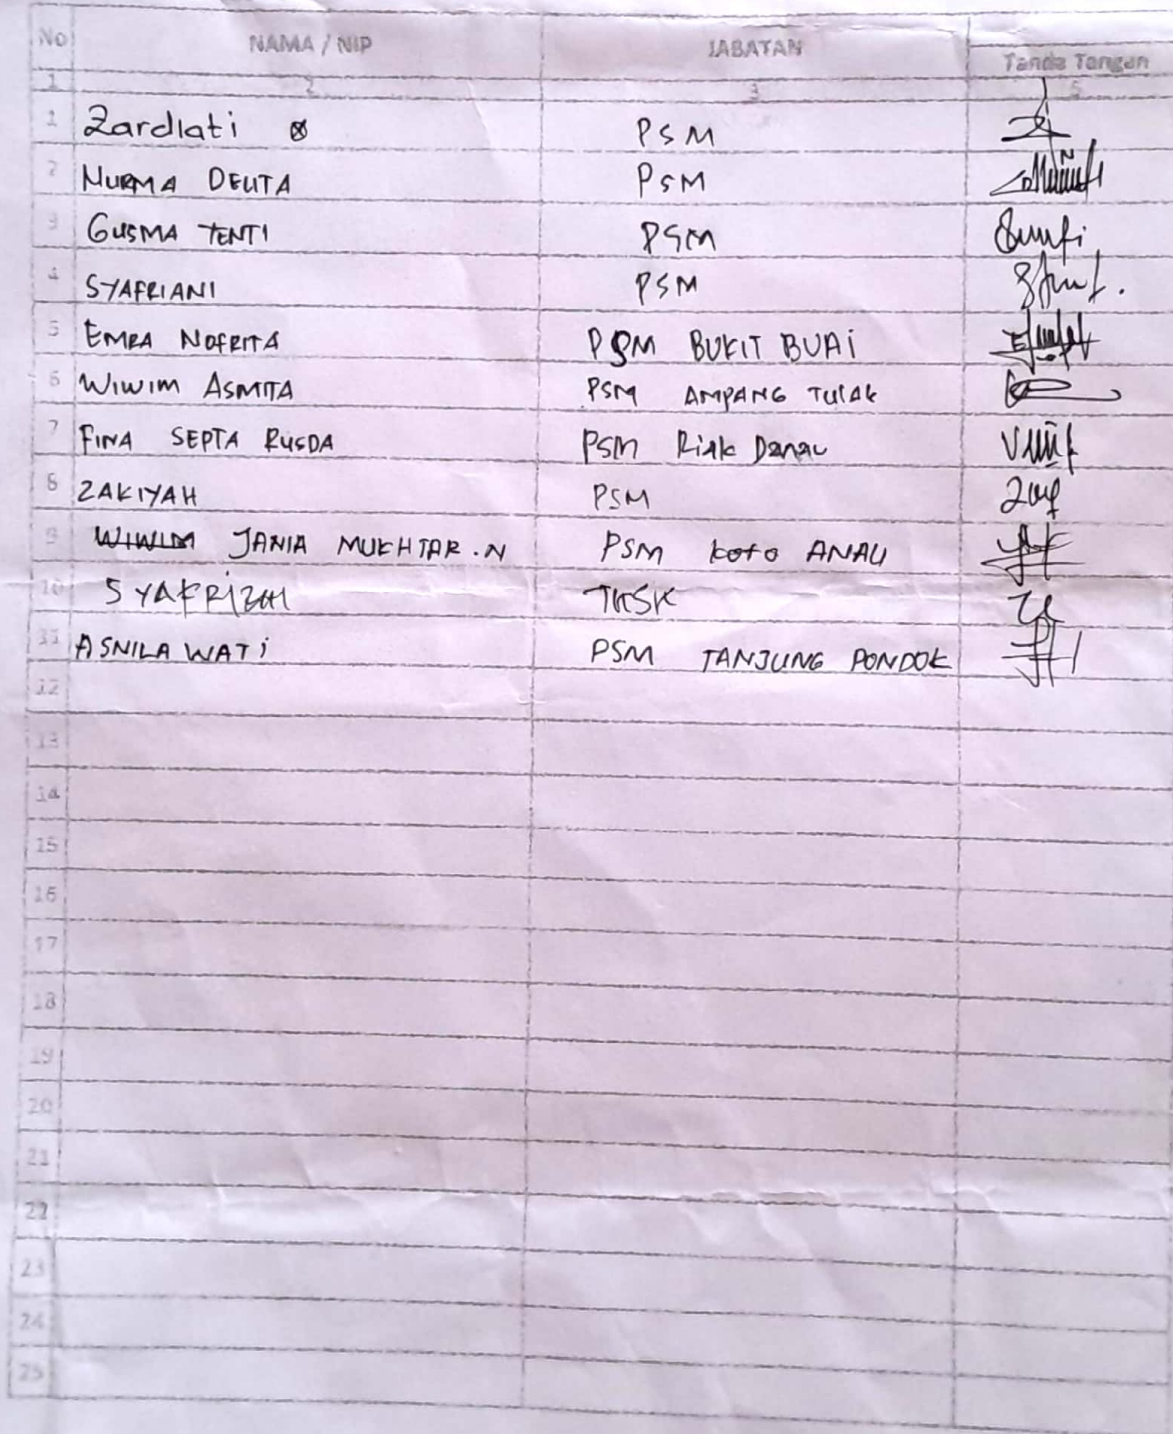 No NAMA / NIP JABATAN Tanda Tangan
1 2 3 5
1 Zardiati PSM
2 NURMA DELITA PSM
3 GUSMA YENTI PSM
4 SYAFRIANI PSM
5 EMRA NOFRITA PSM BUKIT BUAI
6 WIWIM ASMITA PSM AMPANG TULAK
7 FINA SEPTA RUSDA PSM Riak Danau
8 ZAKIYAH PSM
9 WIWIM JANIA MUKHTAR .N PSM koto ANAU
10 SYAFRIZAL TKSK
11 ASNILA WATi PSM TANJUNG PONDOK
12
13
14
15
16
17
18
19
20
21
22
23
24
25